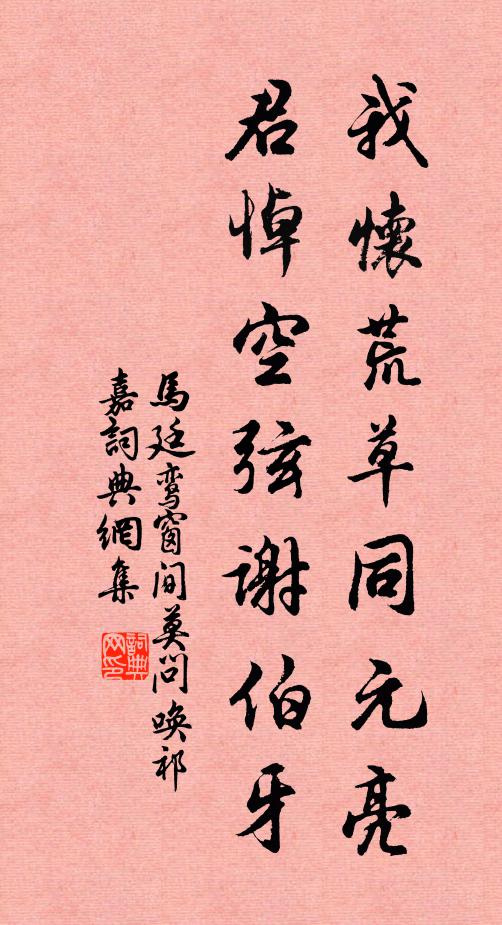 我懷荒草同元亮
君悼空弦謝伯牙
馬廷鸞窗间莫问喚祁
嘉詞典網集
詞典網印